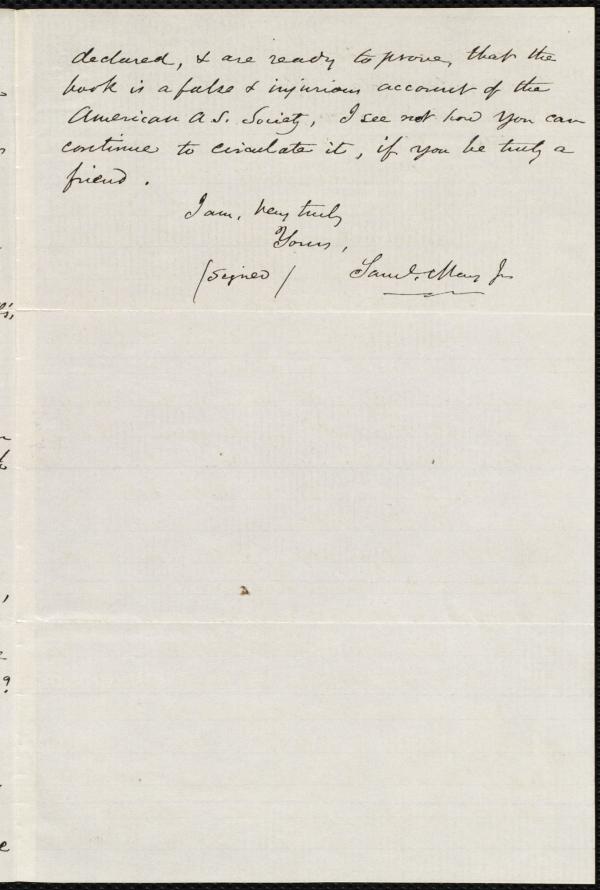 declared, & are ready to prove, that the
book is a false & injurious account of the
American A.S. Society, I see not how you can
continue to circulate it, if you be truly a
friend.
I am, very truly
Yours,
(signed) Saml. May Jr